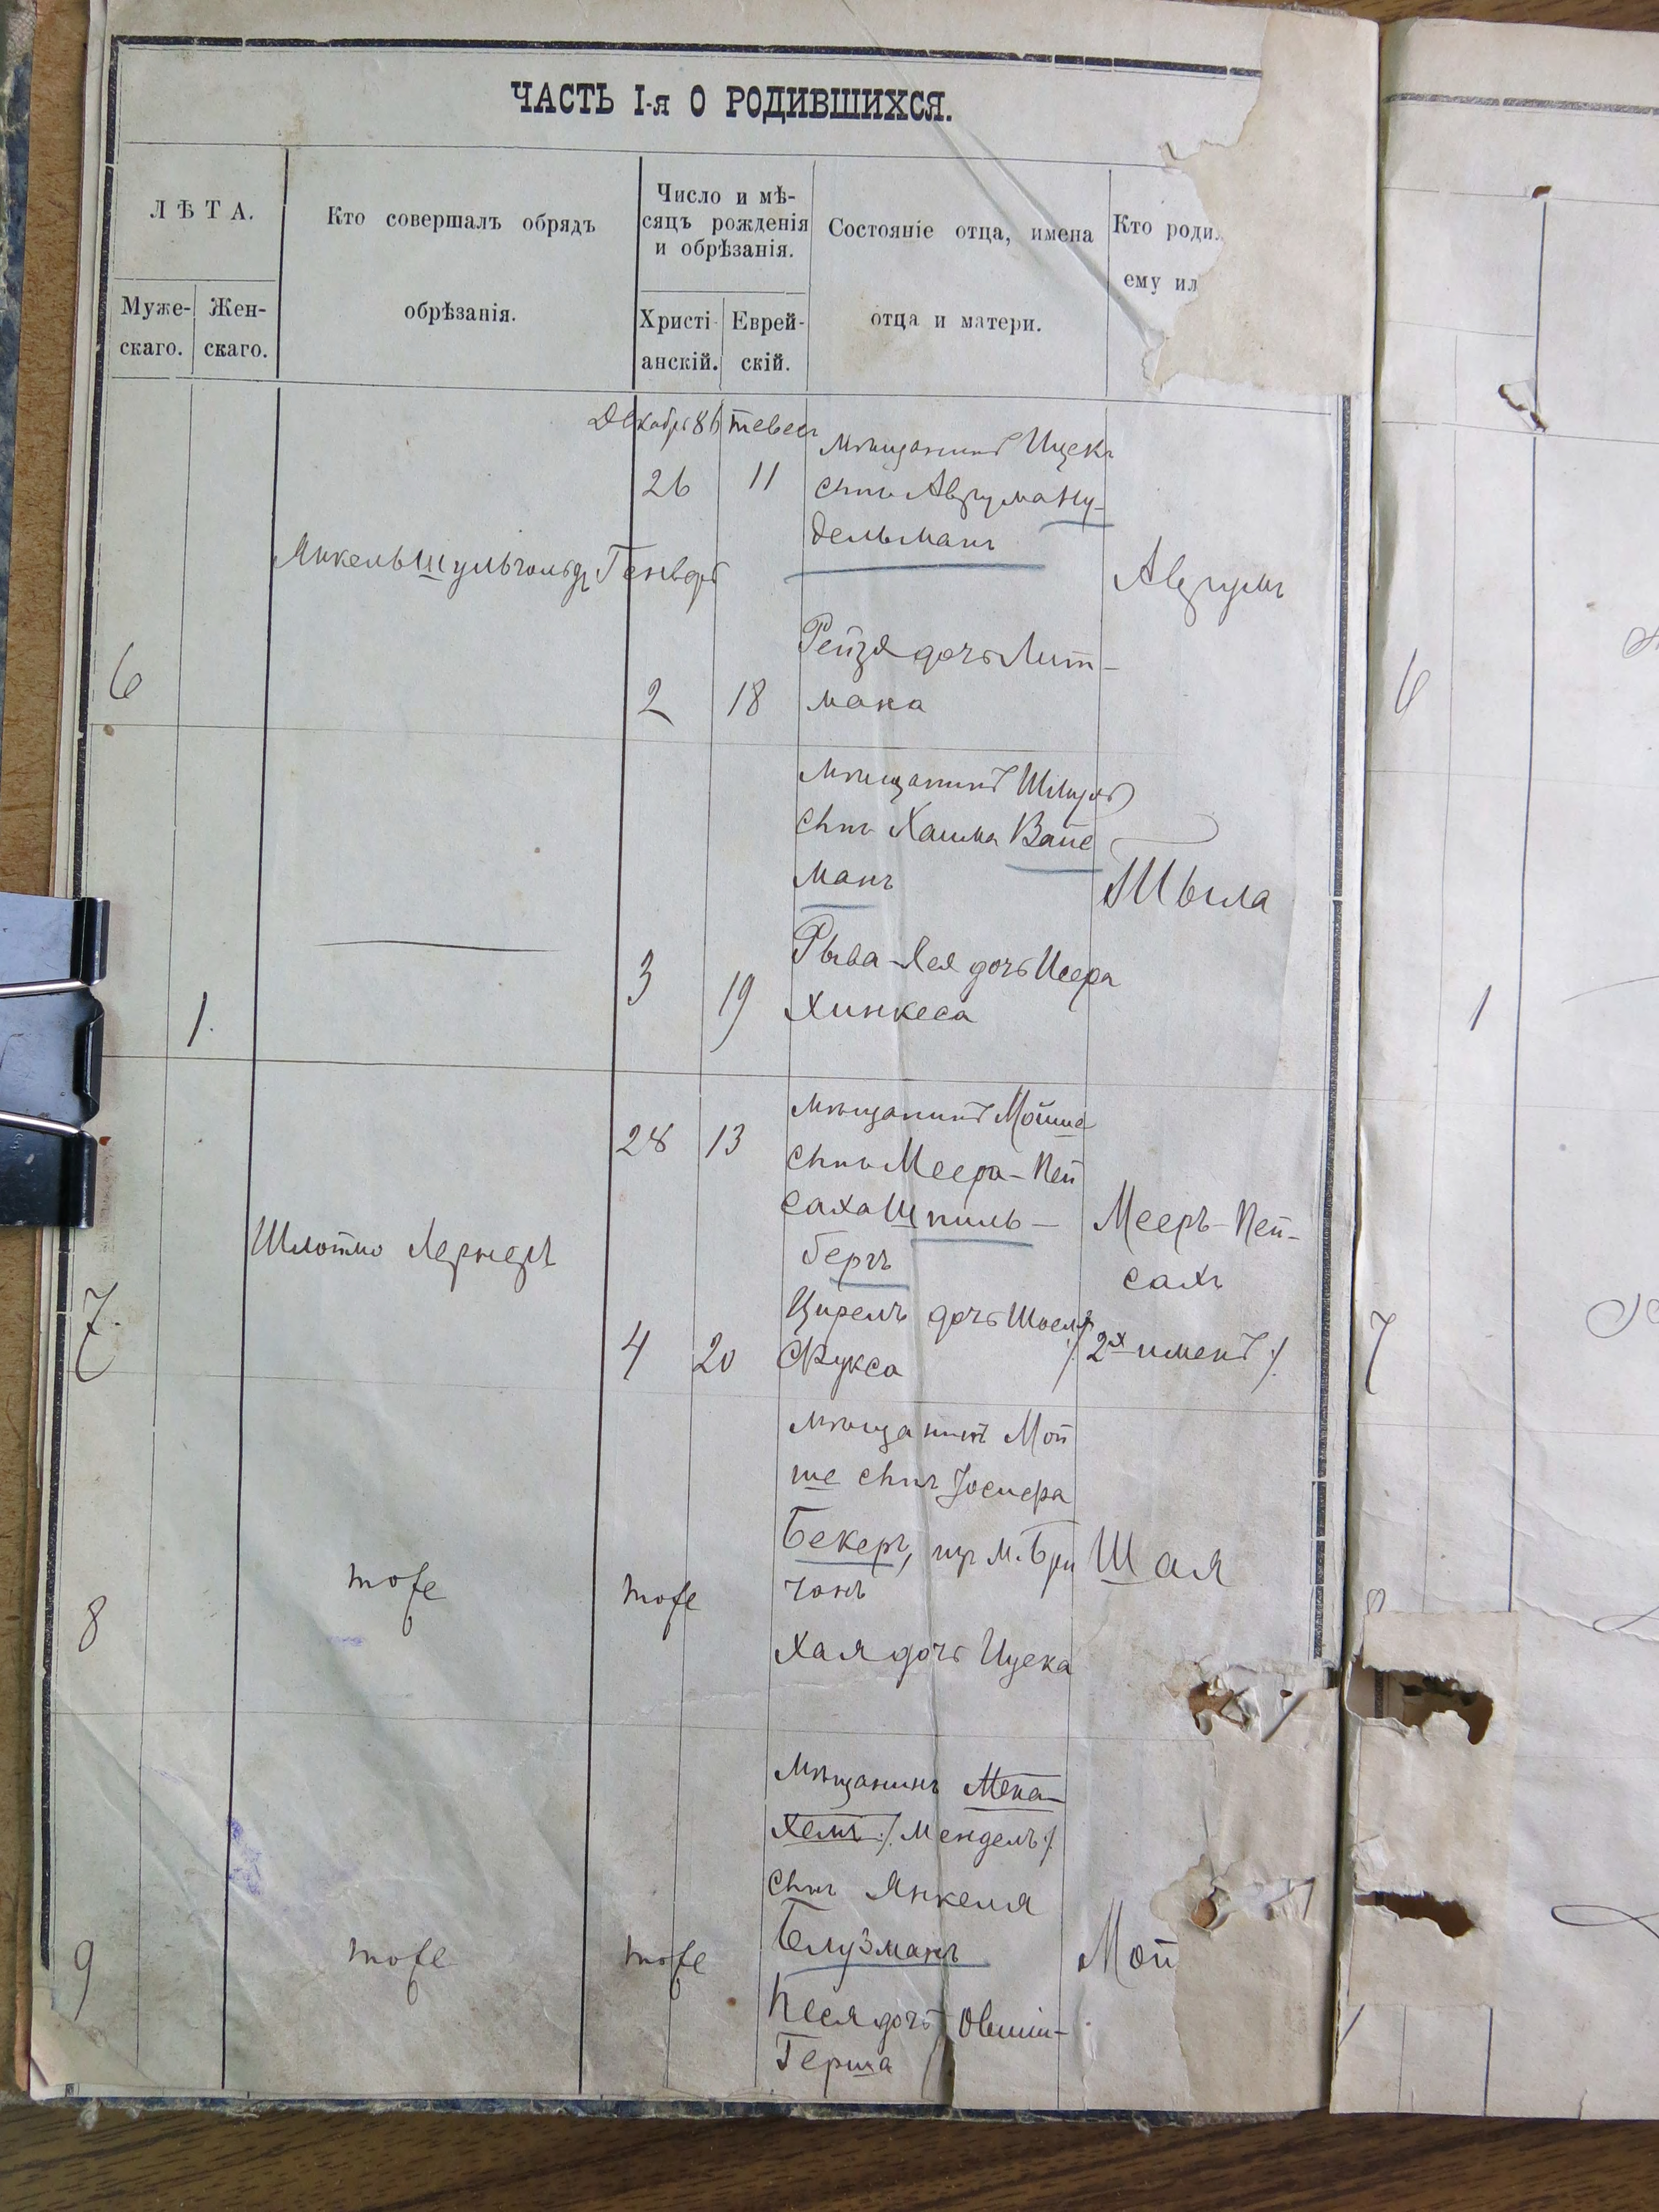 ЧАСТЬ I-я О РОДИВШИХСЯ.
ЛѢТА.
Муже-
скаго.
Жен-
скаго.
Кто совершалъ обрядъ
обрѣзанія.
Число и мѣ-
сяцъ рожденія
и обрѣзанія.
Христі-
анскій.
Еврей-
скій.
Состояніе отца, имена
отца и матери.
Кто роди
ему ил
6
Янкель Шульгольдъ
Декабрь 86
26
Генварь
2
тевес
11
18
мѣщанинъ Ицекъ
сынъ Аврума Ну-
дельманъ
Рейзя дочь Лит-
мана
Аврумъ
6
1.
3
19
мѣщанинъ
сынъ Хаима Вайс
манъ
Рыва-Лея дочь Исера
Хинкеса
1
7.
Шлоймо Лернеръ
28
13
4
20
мѣщанинъ Мойше
сынъ Меера-Пей
саха Шпиль-
бергъ
Цирель дочь
Фукса
Мееръ-Пей-
сахъ
/. 2х именъ /.
7
8
тоже
тоже
мѣщанинъ Мой
ше сынъ
Бекеръ, изъ м. Бри
чанъ
Хая дочь Ицека
Шая
8
9
тоже
тоже
мѣщанинъ Мена-
хемъ /. Мендель /.
сынъ Янкеля
Блузманъ
Песя дочь Овшии-
Герша
Мой